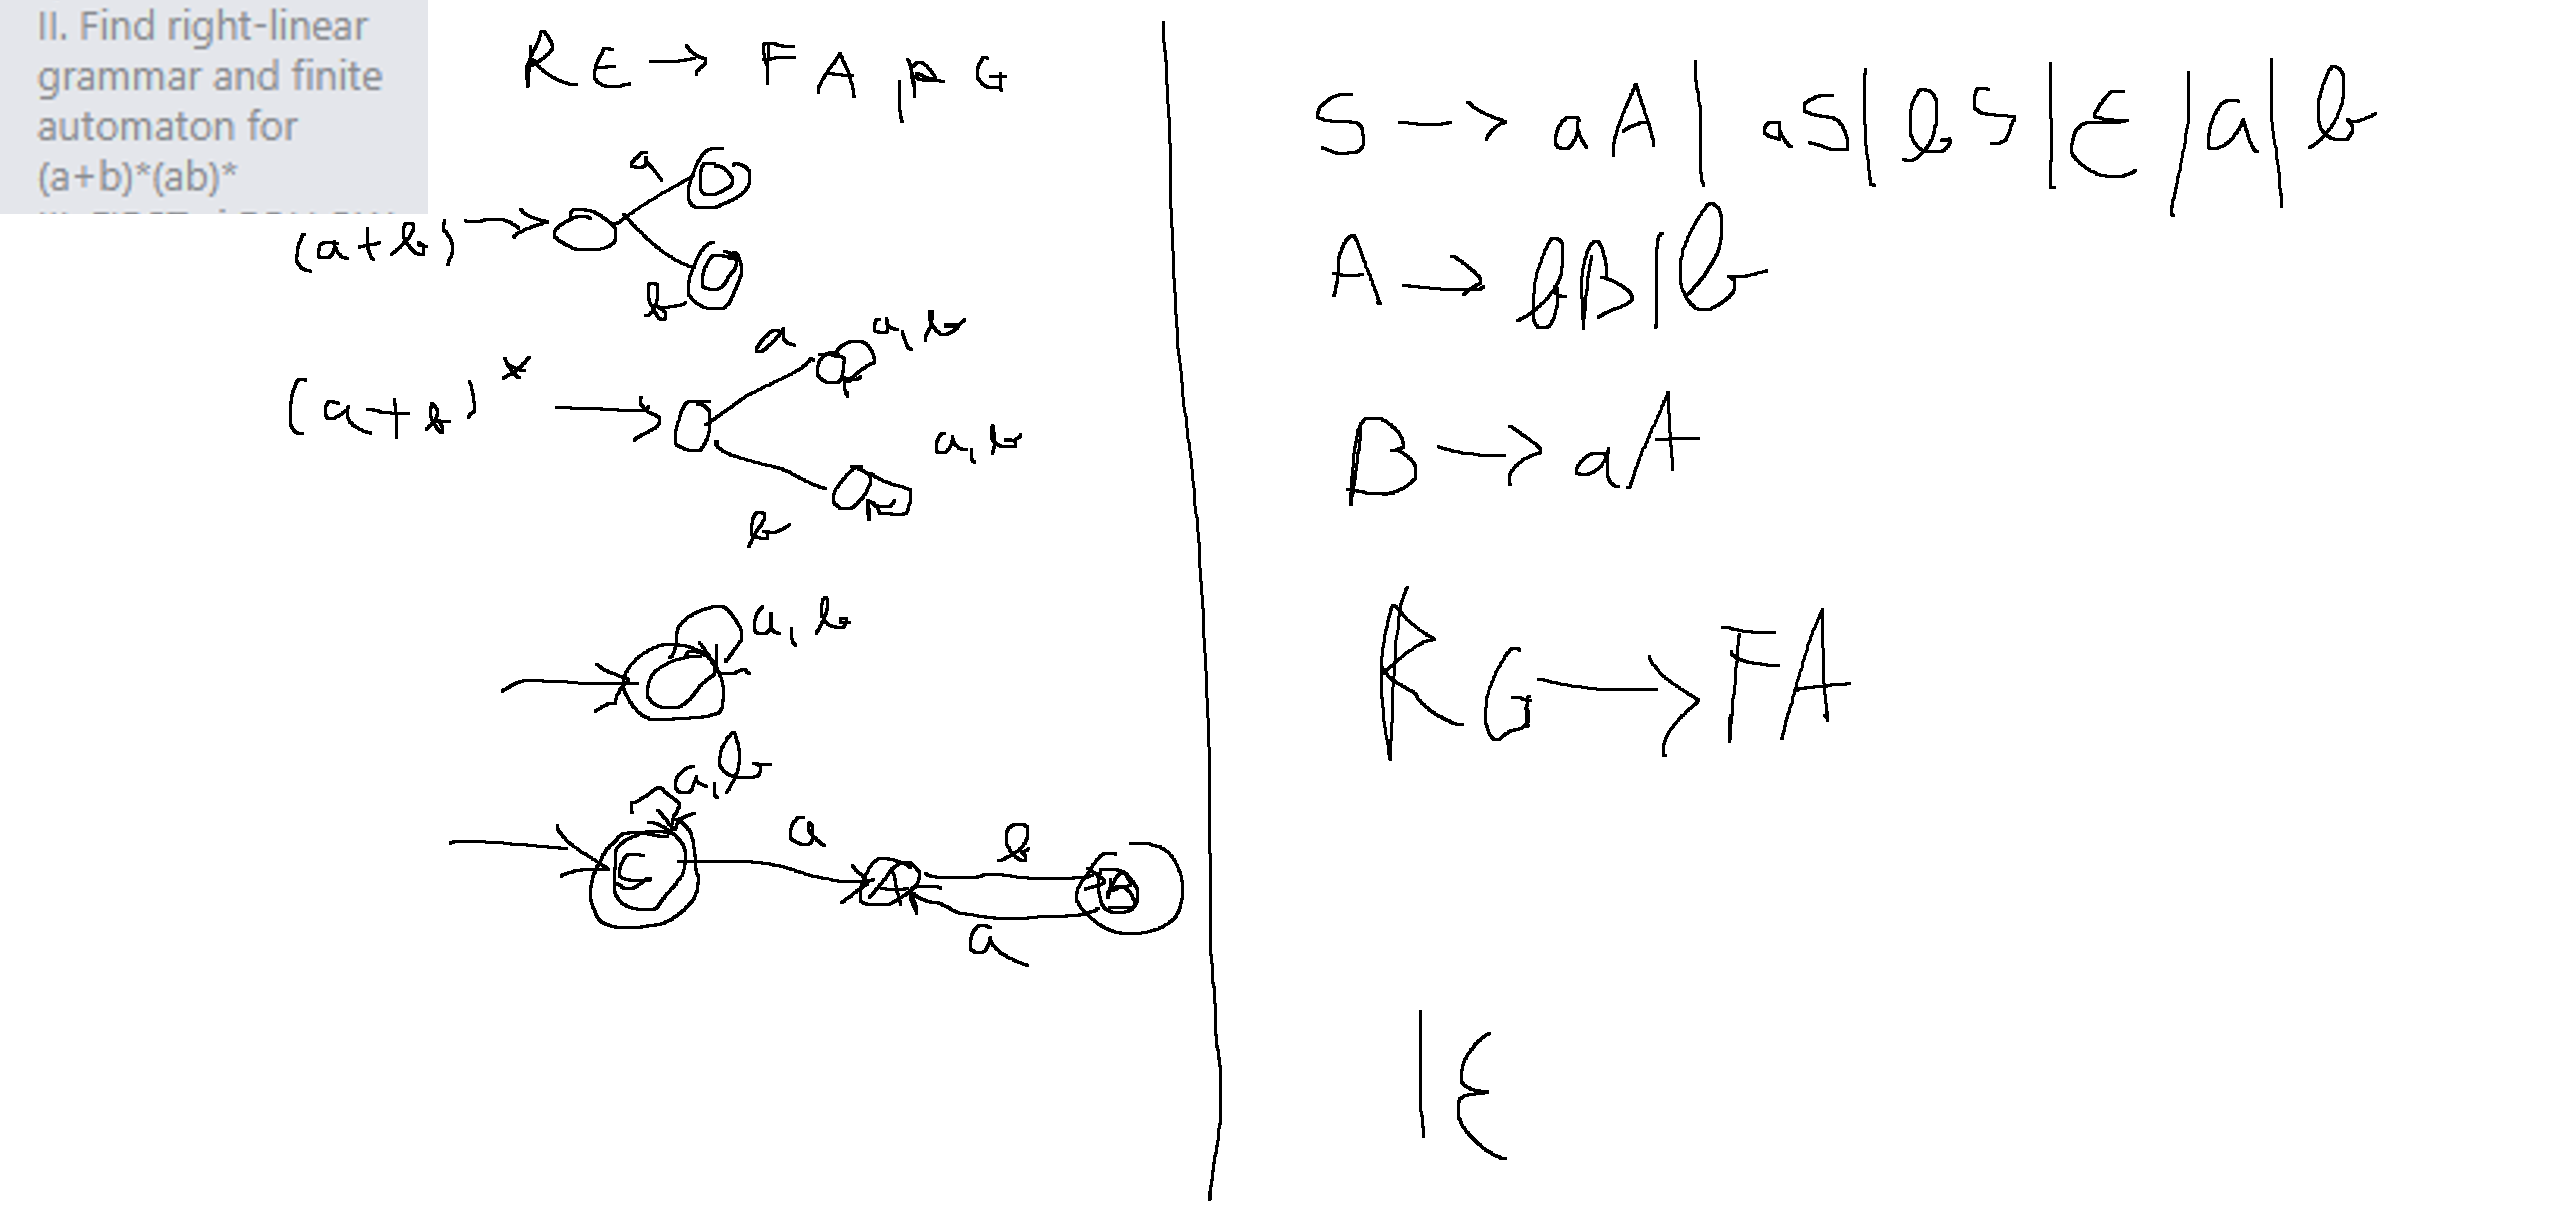 II. Find right-linear
grammar and finite
automaton for
(a+b)*(ab)*
RE → FA, RG
(a+b)
a
b
(a+b)*
a
a, b
a, b
b
a, b
a, b
S
a
A
b
B
a
S → aA | aS | bS | ε | a | b
A → bB | b
B → aA
RG → FA
| ε